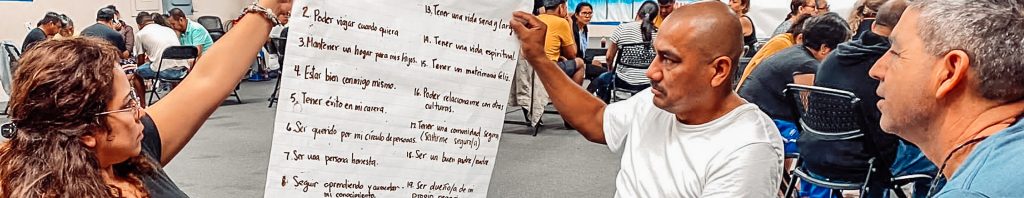 2. Poder viajar cuando quiera
3. Mantener un hogar para mis hijos.
4. Estar bien conmigo mismo.
5. Tener éxito en mi carera.
6. Ser querido por mi círculo de personas.
7. Ser una persona honesta.
8. Seguir aprendiendo y aumentar..
mi conocimiento.
13. Tener una vida sana y
14. Tener una vida espiritual.
15. Tener un matrimonio feliz.
16. Poder relacionarme con otras
culturas.
17. Tener una comunidad segura
(Sentirme seguro/a)
18. Ser un buen padre/madre
19. Ser dueño/a de mi